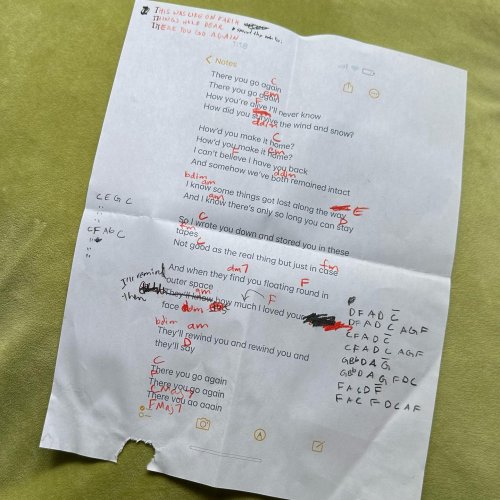 THIS WAS LIFE ON EARTH
THINGS HELD DEAR
THERE YOU GO AGAIN
1:18
Notes
C
There you go again
em
There you go again
F
How you're alive I'll never know
How did you survive the wind and snow?
ddim
C
How'd you make it home?
em
How'd you make it home?
F
I can't believe I have you back
ddim
And somehow we've both remained intact
bdim am
I know some things got lost along the way E
am
And I know there's only so long you can stay
D
C
So I wrote you down and stored you in these
em
tapes
C
Not good as the real thing but just in case
fm
dm7
And when they find you floating round in
F
outer space
I'll remind them
am
They'll know how much I loved your
F
face ddim
bdim am
They'll rewind you and rewind you and
D
they'll say
C
There you go again
F
There you go again
CMaj7
There you go again
FMaj7
C E G C
"
"
C F A D C
"
"
D F A D C
D F A D C A G F
C F A D C
C F A D C A G F
G Bb D A G
G Bb D A G F D C
F A C D F
F A C F D C A F